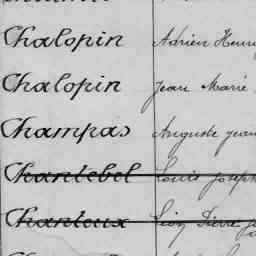 Chalopin Adrien Henri
Chalopin Jean Marie
Champas Auguste Jean
Chantebel Louis Joseph
Chanteux Léon Pierre